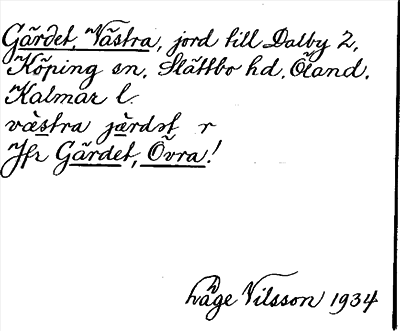 Gärdet, Västra, jord till Dalby 2,
Köping sn, Slättbo hd, Öland,
Kalmar l.
västra järdət r
Jfr Gärdet, Övra!
Åge Nilsson 1934